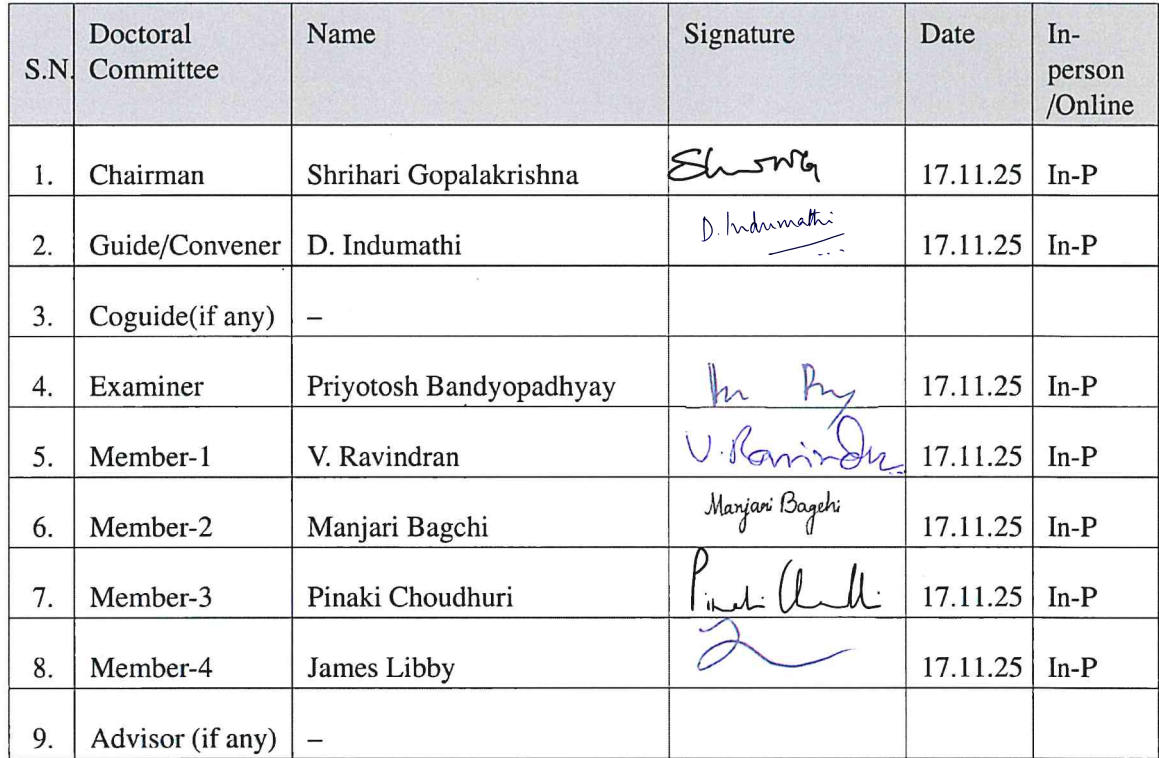 S.N. Doctoral Committee Name Signature Date In-person /Online
1. Chairman Shrihari Gopalakrishna 17.11.25 In-P
2. Guide/Convener D. Indumathi D. Indumathi 17.11.25 In-P
3. Coguide(if any) –
4. Examiner Priyotosh Bandyopadhyay 17.11.25 In-P
5. Member-1 V. Ravindran V. Ravindran 17.11.25 In-P
6. Member-2 Manjari Bagchi Manjari Bagchi 17.11.25 In-P
7. Member-3 Pinaki Choudhuri 17.11.25 In-P
8. Member-4 James Libby 17.11.25 In-P
9. Advisor (if any) –